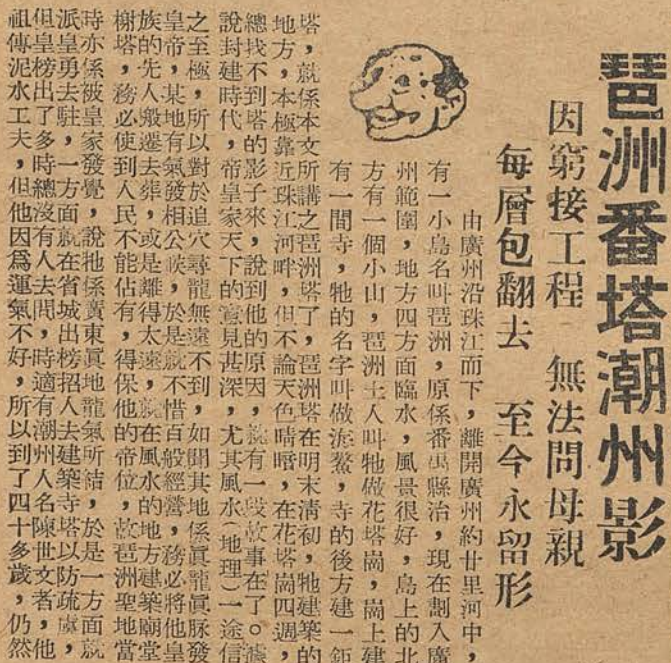 琶洲番塔潮州影
因窮接工程　無法問母親
每層包翻去　至今永留形
由廣州沿珠江而下，離開廣州約廿里河中，
有一小島名叫琶洲，原係番禺縣治，現在劃入廣
州範圍，地方四方面臨水，風景很好，島上的北
方有一個小山，琶洲土人叫牠做花塔崗，崗上建
有一間寺，牠的名字叫做海鰲，寺的後方建一鉅
塔，就係本文所講之琶洲塔了，琶洲塔在明末清初，牠建築的
地方，本極靠近珠江河畔，但不論天色晴暗，在花塔崗四週，
總找不到塔的影子來，說到他的原因，就有一段故事在了。
說封建時代，帝皇家天下的意見甚深，尤其風水（地理）一途信
之至極，所以對於追穴尋龍無遠不到，如聞其地係眞龍眞脉發
皇帝，某地有氣發相公候，於是就不惜百般經營，務必將他皇
族的先人搬遷去葬，或是離得太遠，就在風水的地方建築廟堂
榭塔，務必使到人民不能佔有，得保他的帝位，故琶洲聖地當
時亦係被皇家發覺，說牠係廣東眞地龍氣所結，於是一方面就
派皇勇去駐，一方面就在省城出榜招人去建築寺塔以防疏虞，
但皇榜出了多時總沒有人去問，時適有潮州人名陳世文者，他
祖傳泥水工夫，但他因爲運氣不好，所以到了四十多歲，仍然